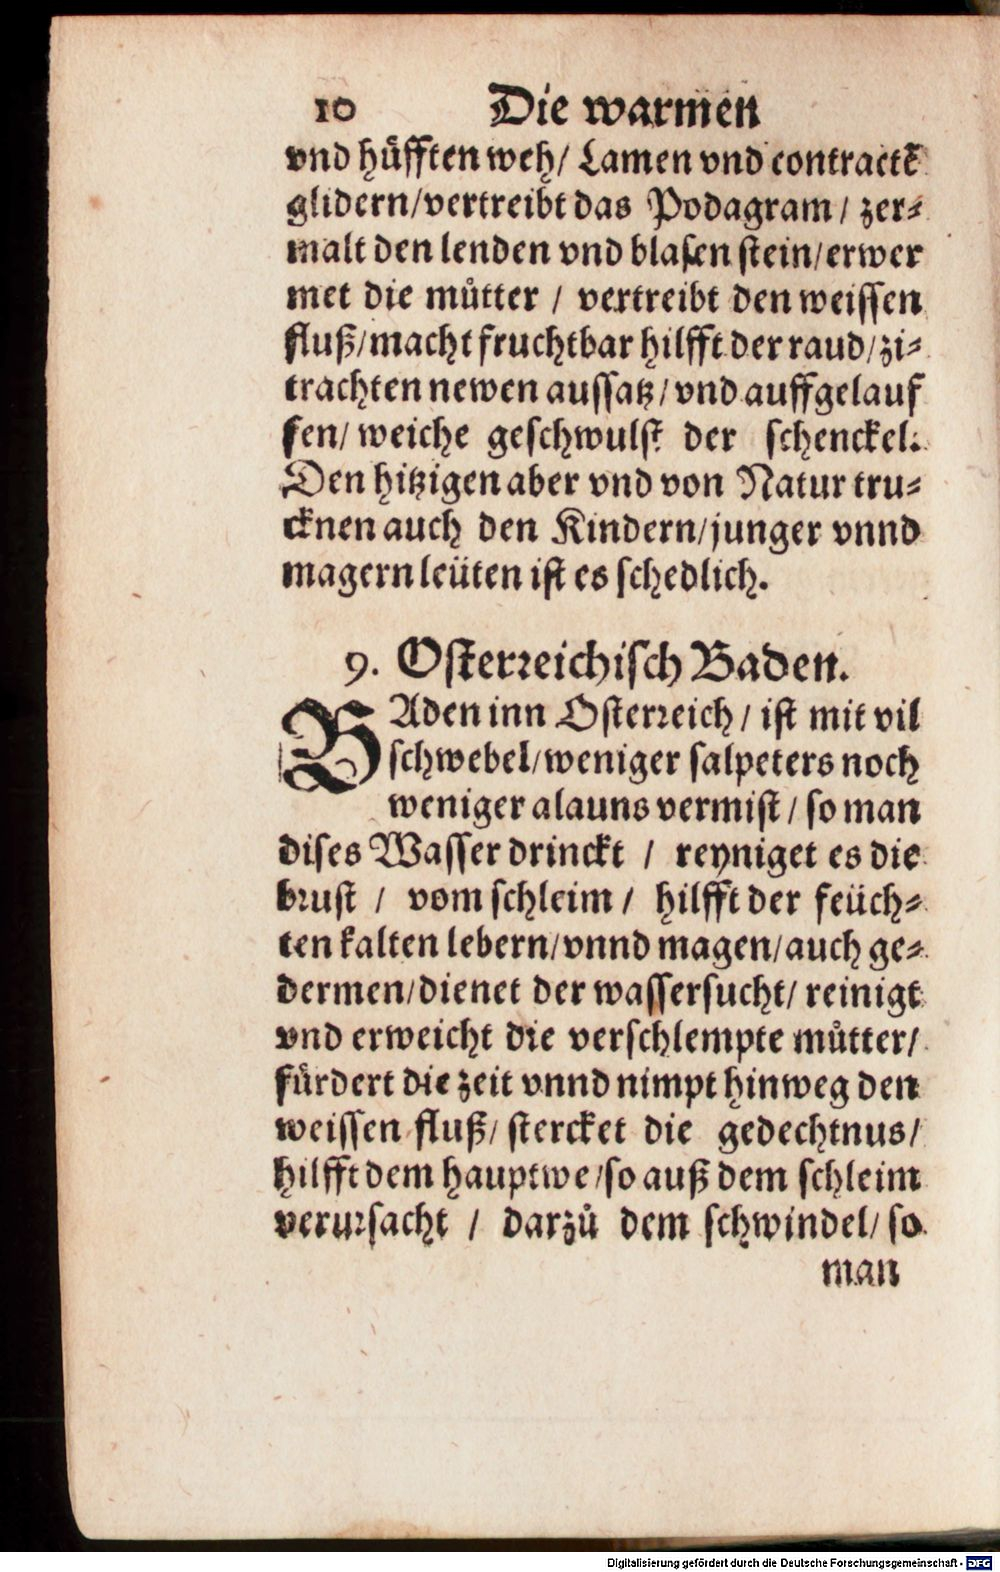 10 Die warmen
vnd hüfften weh/ Lamen vnd contractẽ
glidern/vertreibt das Podagram/ zer⸗
malt den lenden vnd blasen stein/erwer
met die můtter / vertreibt den weissen
fluß/macht fruchtbar hilfft der raud/zi⸗
trachten newen aussatz/ vnd auffgelauf
fen/ weiche geschwulst der schenckel.
Den hitzigen aber vnd von Natur tru⸗
cknen auch den Kindern/junger vnnd
magern leüten ist es schedlich.
9. Osterreichisch Baden.
BAden inn Osterreich/ ist mit vil
schwebel/weniger salpeters noch
weniger alauns vermist/ so man
dises Wasser drinckt / reyniget es die
brust / vom schleim/ hilfft der feüch⸗
ten kalten lebern/vnnd magen/auch ge⸗
dermen/dienet der wassersucht/ reinigt
vnd erweicht die verschlempte můtter/
fürdert die zeit vnnd nimpt hinweg den
weissen fluß/ stercket die gedechtnus/
hilfft dem hauptwe/so auß dem schleim
verursacht / darzů dem schwindel/ so
man
Digitalisierung gefördert durch die Deutsche Forschungsgemeinschaft - DFG